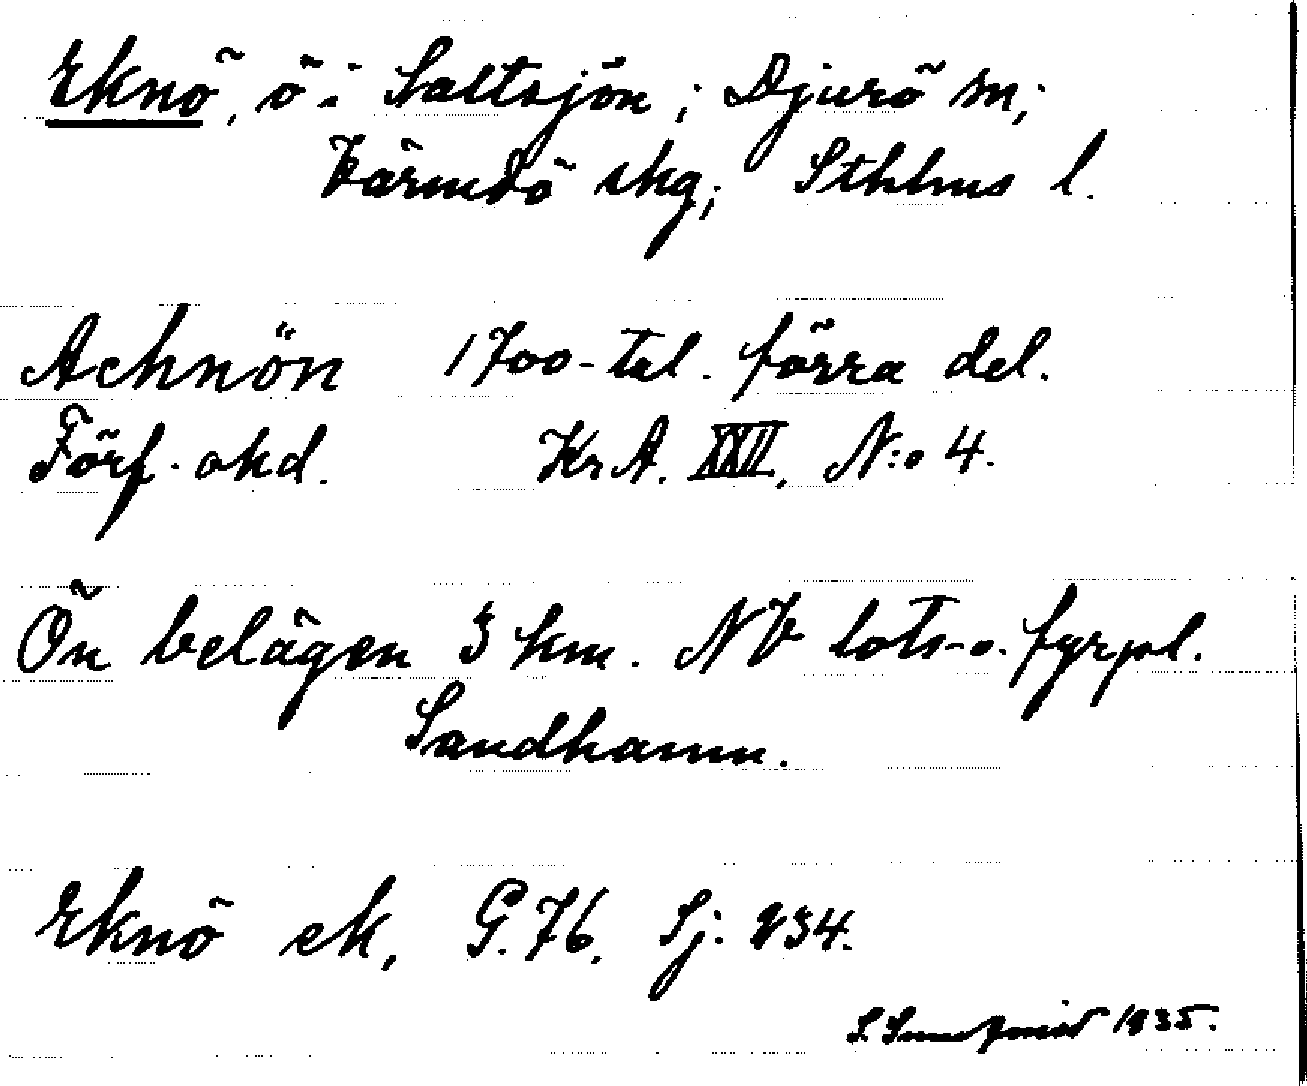 Eknö, ö i Saltsjön; Djurö sn;
Värmdö skg; Sthlms l.
Aehnön 1700-tal. förra del.
Förf. okd. Kr A. XXII, N:o 4.
Ön belägen 3 km. NV lots- o. fyrpl.
Sandhamn.
Eknö ek, G. 76. Sj: 234.
S. 1935.